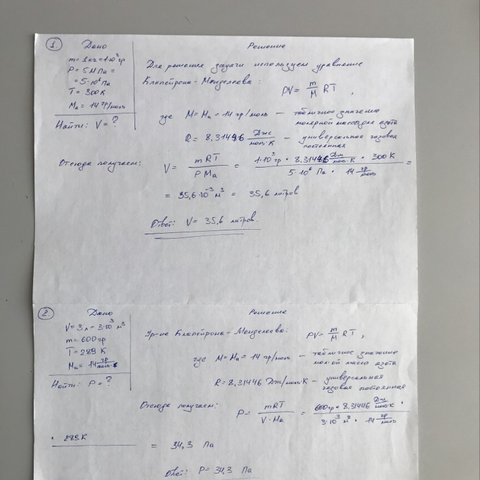 1. Дано Решение
m = 1кг = 1·10³ гр
P = 5 МПа =
= 5·10⁶ Па
T = 300 К
Mа = 14 гр/моль
Найти: V = ?
Для решения задачи используем уравнение
Клапейрона-Менделеева:
PV = m/M RT ,
где M = Mа = 14 гр/моль – табличное значение
молярной массы азота
R = 8,31446 Дж/моль·К – универсальная газовая
постоянная
Отсюда получаем: V = mRT/P Mа = 1·10³ гр · 8,31446 Дж/моль·К · 300 К / 5·10⁶ Па · 14 гр/моль =
= 35,6·10⁻³ м³ = 35,6 литров
Ответ: V = 35,6 литров.
2. Дано Решение
V = 3 л = 3·10⁻³ м³
m = 600 гр
T = 289 К
Mа = 14
Найти: P = ?
Ур-ие Клапейрона-Менделеева: PV = m/M RT ,
где M = Mа = 14 гр/моль – табличное значение
масса азота
R = 8,31446 Дж/моль·К – универсальная
газовая постоянная
Отсюда получаем: P = mRT/V·Mа = 600 гр · 8,31446 Дж/моль·К · / 3·10⁻³ м³ · 14 гр/моль
· 289 К = 34,3 Па
Ответ: P = 34,3 Па